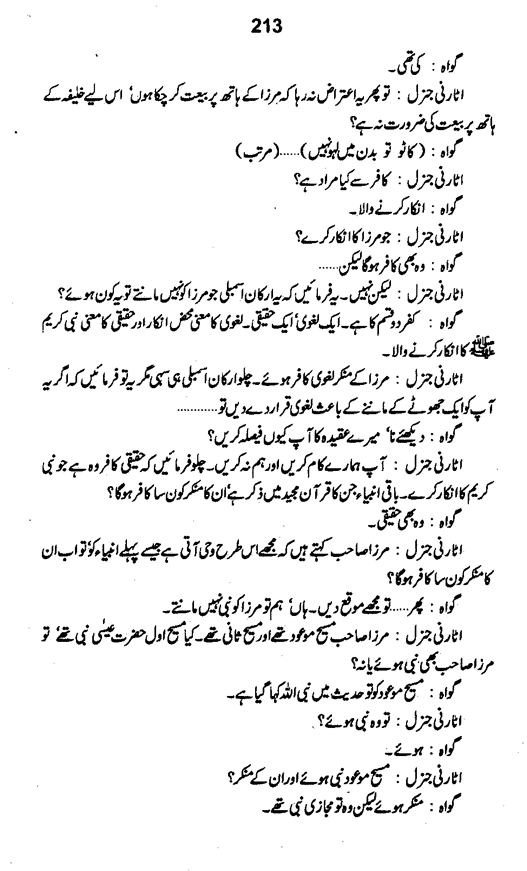 213
گواہ : کی تھی۔
اٹارنی جنرل : تو پھر یہ اعتراض نہ رہا کہ مرزا کے ہاتھ پر بیعت کر چکا ہوں‘ اس لیے خلیفہ کے
ہاتھ پر بیعت کی ضرورت نہ ہے؟
گواہ : (کاٹو تو بدن میں لہو نہیں)......(مرتب)
اٹارنی جنرل : کافر سے کیا مراد ہے؟
گواہ : انکار کرنے والا۔
اٹارنی جنرل : جو مرزا کا انکار کرے؟
گواہ : وہ بھی کافر ہوگا لیکن......
اٹارنی جنرل : لیکن نہیں۔ یہ فرمائیں کہ یہ ارکان اسمبلی جو مرزا کو نہیں مانتے تو یہ کون ہوئے؟
گواہ : کفر دو قسم کا ہے۔ ایک لغوی‘ ایک حقیقی۔ لغوی کا معنی محض انکار اور حقیقی کا معنی نبی کریم
ﷺ کا انکار کرنے والا۔
اٹارنی جنرل : مرزا کے منکر لغوی کافر ہوئے۔ چلو ارکان اسمبلی ہی سہی مگر یہ تو فرمائیں کہ اگر یہ
آپ کو ایک جھوٹے کے ماننے کے باعث لغوی قرار دے دیں تو............
گواہ : دیکھئے نا‘ میرے عقیدہ کا آپ کیوں فیصلہ کریں؟
اٹارنی جنرل : آپ ہمارے کام کریں اور ہم نہ کریں۔ چلو فرمائیں کہ حقیقی کافر وہ ہے جو نبی
کریم کا انکار کرے۔ باقی انبیاء جن کا قرآن مجید میں ذکر ہے‘ ان کا منکر کون سا کافر ہوگا؟
گواہ : وہ بھی حقیقی۔
اٹارنی جنرل : مرزا صاحب کہتے ہیں کہ مجھے اس طرح وحی آتی ہے جیسے پہلے انبیاء کو‘ تو اب ان
کا منکر کون سا کافر ہوگا؟
گواہ : پھر......تو مجھے موقع دیں۔ ہاں‘ ہم تو مرزا کو نبی نہیں مانتے۔
اٹارنی جنرل : مرزا صاحب مسیح موعود تھے اور مسیح ثانی تھے۔ کیا مسیح اول حضرت عیسٰی نبی تھے‘ تو
مرزا صاحب بھی نبی ہوئے یا نہ؟
گواہ : مسیح موعود کو تو حدیث میں نبی اللہ کہا گیا ہے۔
اٹارنی جنرل : تو وہ نبی ہوئے؟
گواہ : ہوئے۔
اٹارنی جنرل : مسیح موعود نبی ہوئے اور ان کے منکر؟
گواہ : منکر ہوئے لیکن وہ تو مجازی نبی تھے۔